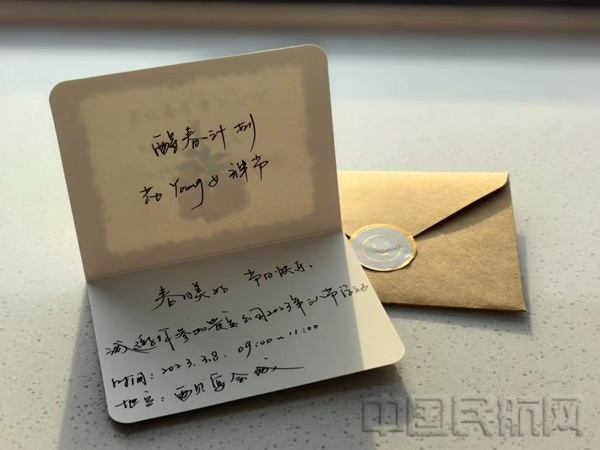 醒春计划
花Young女神节
春日美好 节日快乐。
诚邀您参加贵宾公司2023年三八节活动
时间：2023.3.8. 09:00~11:00
地点：
中国民航网